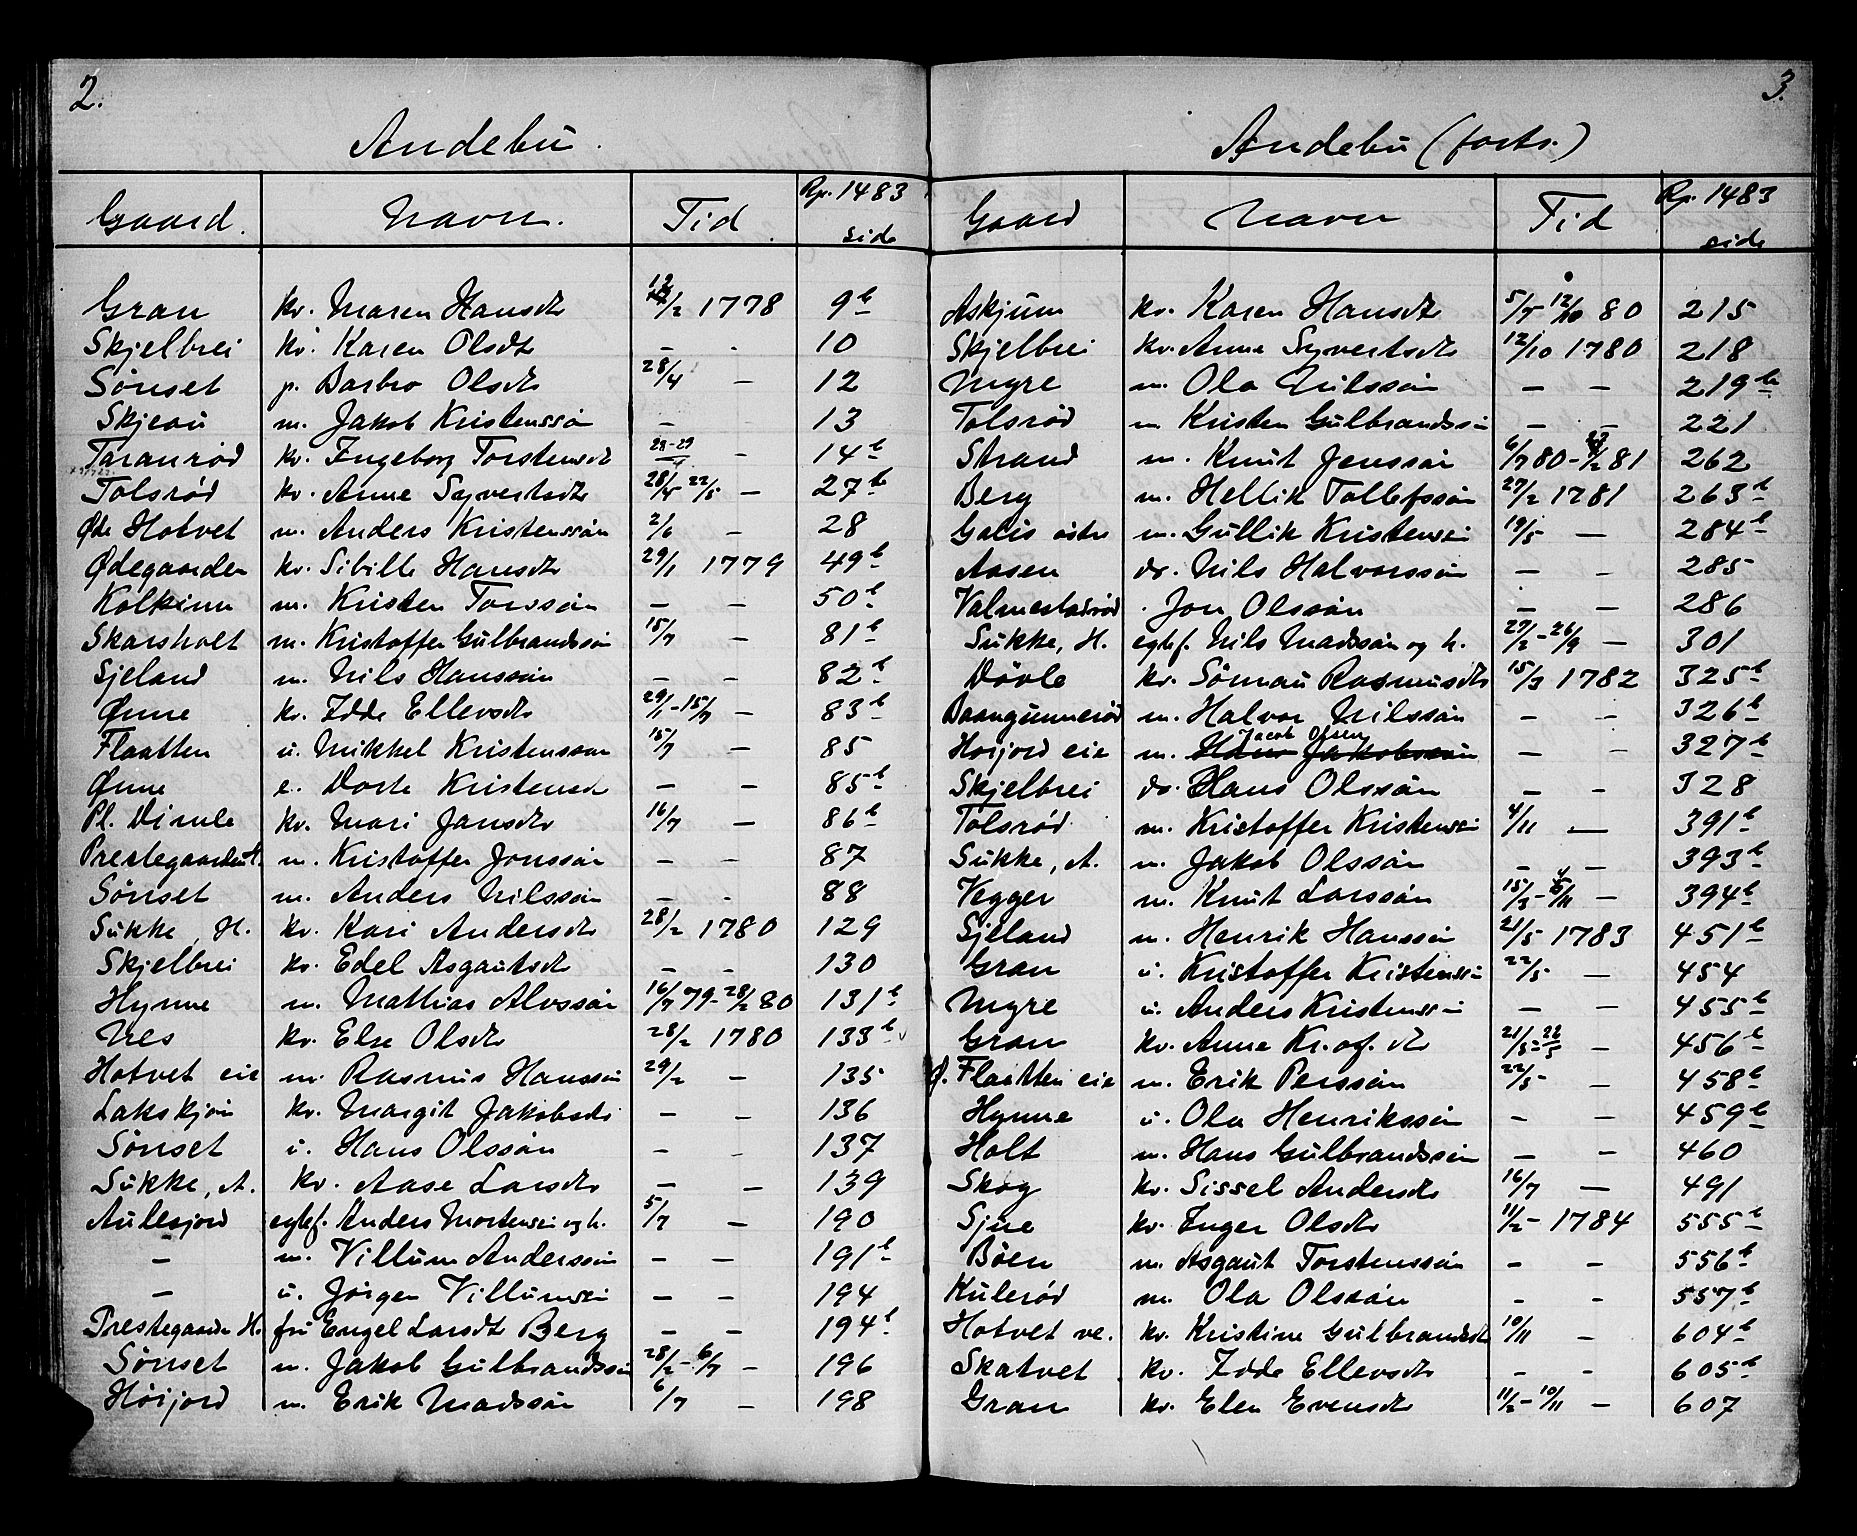 2.
Andebu.
Gaard. Navn. Tid Rp. 1483 side
Gran kv. Maren Hansdtr 12/2 1778 9b
Skjelbrei kv. Karen Olsdtr — - 10
Sönset p. Barbro Olsdtr 28/4 — 12
Skjeau m. Jakob Kristenssön — - 13
Taranröd kv. Ingeborg Torstensdtr 28-29/4 — 14b
Tolsröd kv. Anne Syvertsdtr 28/4 22/5 — 27b
Øde Hotvet m. Anders Kristenssön 2/6 — 28
Ødegaarden kv. Sibille Hansdtr 29/1 1779 49b
Kolkinn m. Kristen Torssön — — 50b
Skarsholt m. Kristoffer Gulbrandssön 15/7 - 81b
Sjeland m. Nils Hanssön — — 82b
Ønne kv. Idde Ellevsdtr 29/1-15/7 — 83b
Flaatten u. Mikkel Kristenssøn 15/7 — 85
Ønne e. Dorte Kristensd — — 85b
Pl. Dimle kv. Mari Jansdtr 16/7 — 86b
Prestegaarden H. m. Kristoffer Jonssön — — 87
Sönset m. Anders Nilssön — - 88
Sukke, H. kv. Kari Andersdtr 28/2 1780 129
Skjelbrei kv. Edel Asgautsdtr — - 130
Hynne m. Mathias Alvssön 16/7 79-28/2 80 131b
Nes kv. Else Olsdtr 28/2 1780 133b
Hotvet eie m. Rasmus Hanssön 29/2 — 135
Lakskjön kv. Margit Jakobsdtr — — 136
Sönset u. Hans Olssön — - 137
Sukke, A. kv. Aase Larsdtr — — 139
Aulesjord egtef. Anders Mortenssön og h. 5/7 — 190
— m. Villum Anderssön — — 191b
— u. Jörgen Villumssön — — 194
Prestegaarden H. fru Engel Larsdtr Berg — — 194b
Sönset m. Jakob Gulbrandssön 28/2-6/7 — 196
Höijord m. Erik Madssön 6/7 — 198
3.
Andebu (forts.)
Gaard Navn Tid Rp. 1483 side
Askjum kv. Karen Hansdtr 5/7 12/10 80 215
Skjelbrei kv. Anne Syvertsdtr 12/10 1780 218
Myre m. Ola Nilssön — — 219b
Tolsröd m. Kristen Gulbrandssön — — 221
Strand m. Knut Jenssön 6/7 80-27/2 81 262
Berg m. Hellik Tollefssön 27/2 1781 263b
Galis östre m. Gullik Kristenssön 19/5 — 284b
Aasen do. Nils Halvorssön — - 285
Valmestadröd . Jon Olssön — — 286
Sukke, H. egtef. Nils Madssön og h. 27/2-26/9 — 301
Dövle kv. Sörnau Rasmusdtr 15/3 1782 325b
Baangunneröd m. Halvor Nilssön — — 326b
Höijord eie m. Jacob Olsen Hans Jakobssön — — 327b
Skjelbrei do. Hans Olssön — - 328
Tolsröd m. Kristoffer Kristenssön 4/11 — 391b
Sukke, A. m. Jakob Olssön — — 393b
Vegger m. Knut Larssön 15/3-4/11 — 394b
Sjeland m. Henrik Hanssön 21/5 1783 451b
Gran u. Kristoffer Kristenssön 22/5 — 454
Myre u. Anders Kristenssön — — 455b
Gran kv. Anne Kr.of. dtr 21/5-22/5 — 456b
Ø. Flaatten eie m. Erik Perssön 22/5 - 458b
Hynne u. Ola Henrikssön - — 459b
Holt m. Hans Gulbrandssön — — 460
Skog kv. Sissel Andersdtr 16/7 — 491
Sjue kv. Inger Olsdtr 11/2- 1784 555b
Böen m. Asgaut Torstenssön - — 556b
Kuleröd m. Ola Olssön - — 557b
Hotvet ve. kv. Kristine Gulbrandsdtr 10/11 - 604b
Skatvet kv. Idde Ellevsdtr - - 605b
Gran kv. Elen Evensdtr 11/2-10/11 — 607